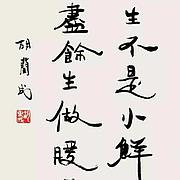 生不是小鮮
盡餘生做暖
胡蘭成